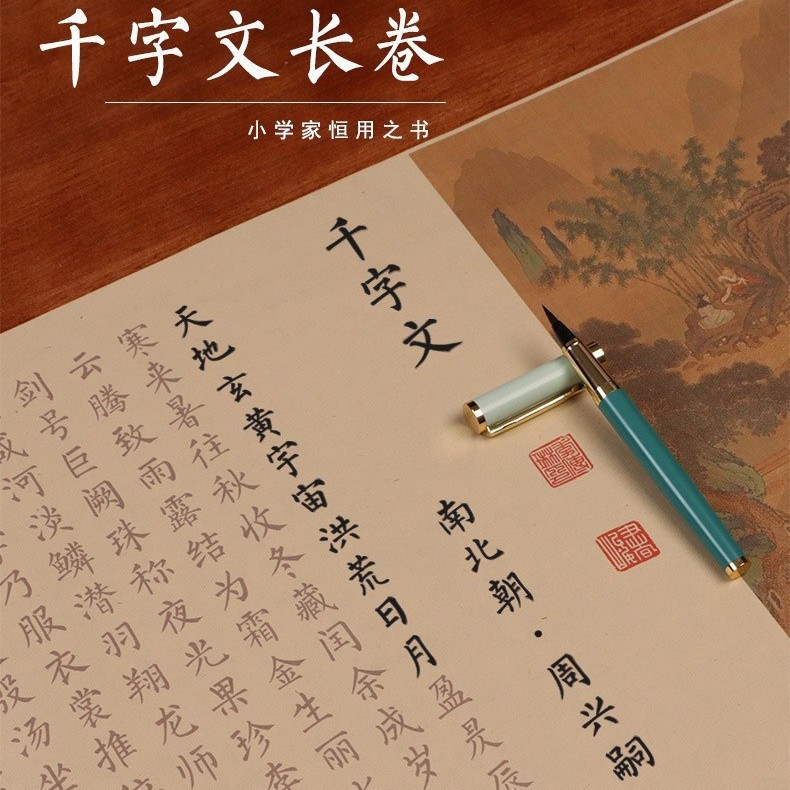 千字文长卷
小学家恒用之书
千字文
南北朝·周兴嗣
天地玄黄宇宙洪荒日月盈昃辰
寒来暑往秋收冬藏闰余成岁
云腾致雨露结为霜金生丽
剑号巨阙珠称夜光果珍李
咸河淡鳞潜羽翔龙师
乃服衣裳推
殷汤坐